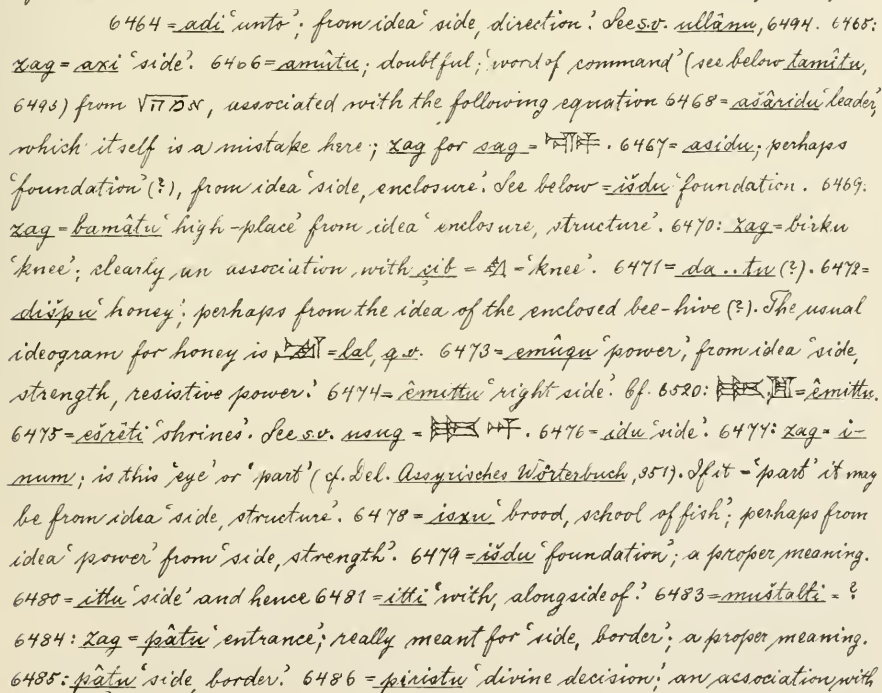 6464 = adi 'unto'; from idea 'side, direction'. See s.v. ullânu, 6494. 6465:
zag = axi 'side'. 6466 = amûtu; doubtful; 'word of command' (see below tamîtu,
6495) from √, associated with the following equation 6468 = ašâridu 'leader,'
which itself is a mistake here; zag for sag = . 6467 = asidu; perhaps
'foundation' (?), from idea 'side, enclosure'. See below = išdu 'foundation. 6469:
zag = bamâtu 'high-place' from idea 'enclosure, structure'. 6470: zag = birku
'knee'; clearly an association with çib = = 'knee'. 6471 = da..tu (?). 6472 =
dišpu 'honey'; perhaps from the idea of the enclosed bee-hive (?). The usual
ideogram for honey is = lal, q.v. 6473 = emûqu 'power', from idea 'side,
strength, resistive power.' 6474 = êmittu 'right side'. Cf. 6520: = êmittu.
6475 = ešrêti 'shrines'. See s.v. usug = . 6476 = idu 'side'. 6477: zag = i-
num; is this 'eye' or 'part' (cf. Del. Assyrisches Wörterbuch, 951). If it = 'part' it may
be from idea 'side, structure'. 6478 = isxu 'brood, school of fish'; perhaps from
idea 'power' from 'side, strength'. 6479 = išdu 'foundation'; a proper meaning.
6480 = ittu 'side' and hence 6481 = itti 'with, alongside of.' 6483 = muštalti = ?
6484: zag = pâtu 'entrance'; really meant for 'side, border'; a proper meaning.
6485: pâtu 'side, border.' 6486 = piristu 'divine decision'; an association with